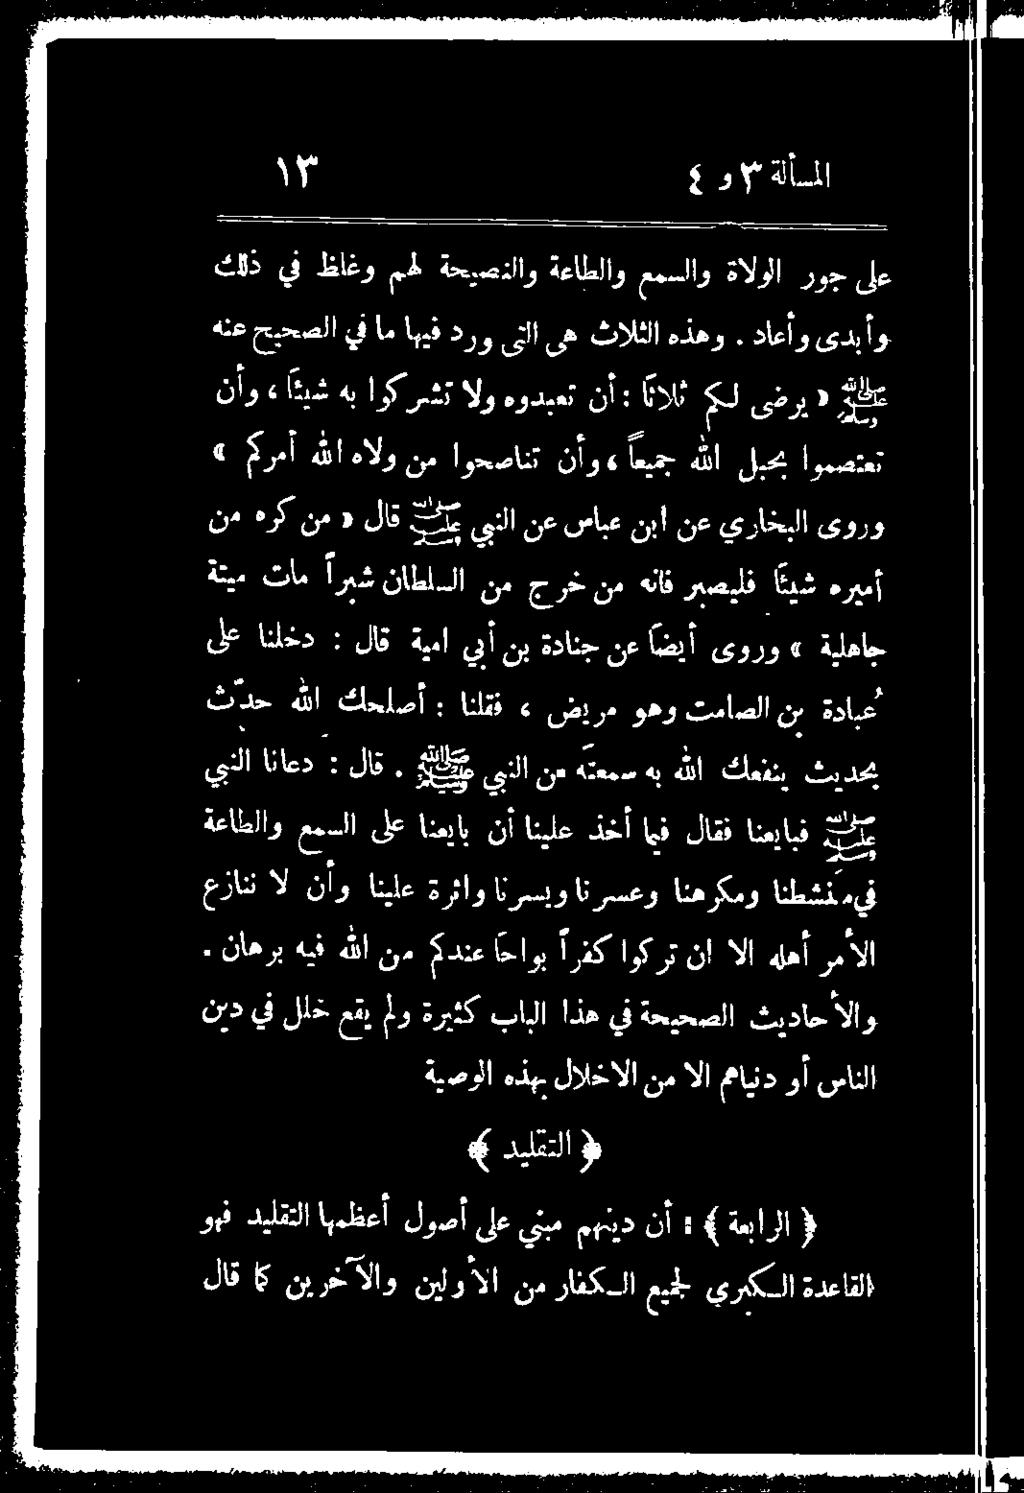 المسألة ٣ و ٤ ١٣
على جور الولاة والسمع والطاعة والنصيحة لهم وغلظ في ذلك
وأبدى وأعاد . وهذه الثلاث هى التى ورد فيها ما في الصحيح عنه
صلى الله عليه وسلم « يرضى لكم ثلاثاً : أن تعبدوه ولا تشركوا به شيئاً ، وأن
تعتصموا بحبل الله جميعاً ، وأن تناصحوا من ولاه الله أمركم »
وروى البخاري عن ابن عباس عن النبي صلى الله عليه وسلم قال « من كره من
أميره شيئاً فليصبر فانه من خرج من السلطان شبراً مات ميتة
جاهلية » وروى أيضاً عن جنادة بن أبي امية قال : دخلنا على
عُبادة بن الصامت وهو مريض ، فقلنا : أصلحك الله حدّث
بحديث ينفعك الله به سمعتَه من النبي صلى الله عليه وسلم . قال : دعانا النبي
صلى الله عليه وسلم فبايعنا فقال فيما أخذ علينا أن بايعنا على السمع والطاعة
في منشطنا ومكرهنا وعسرنا ويسرنا واثرة علينا وأن لا ننازع
الأمر أهله الا ان تركوا كفراً بواحاً عندكم من الله فيه برهان .
والأحاديث الصحيحة في هذا الباب كثيرة ولم يقع خلل في دين
الناس أو دنياهم الا من الاخلال بهذه الوصية
﴿ التقليد ﴾
﴿ الرابعة ﴾ : أن دينهم مبني على أصول أعظمها التقليد فهو
القاعدة الكبرى لجميع الكفار من الأولين والآخرين كما قال